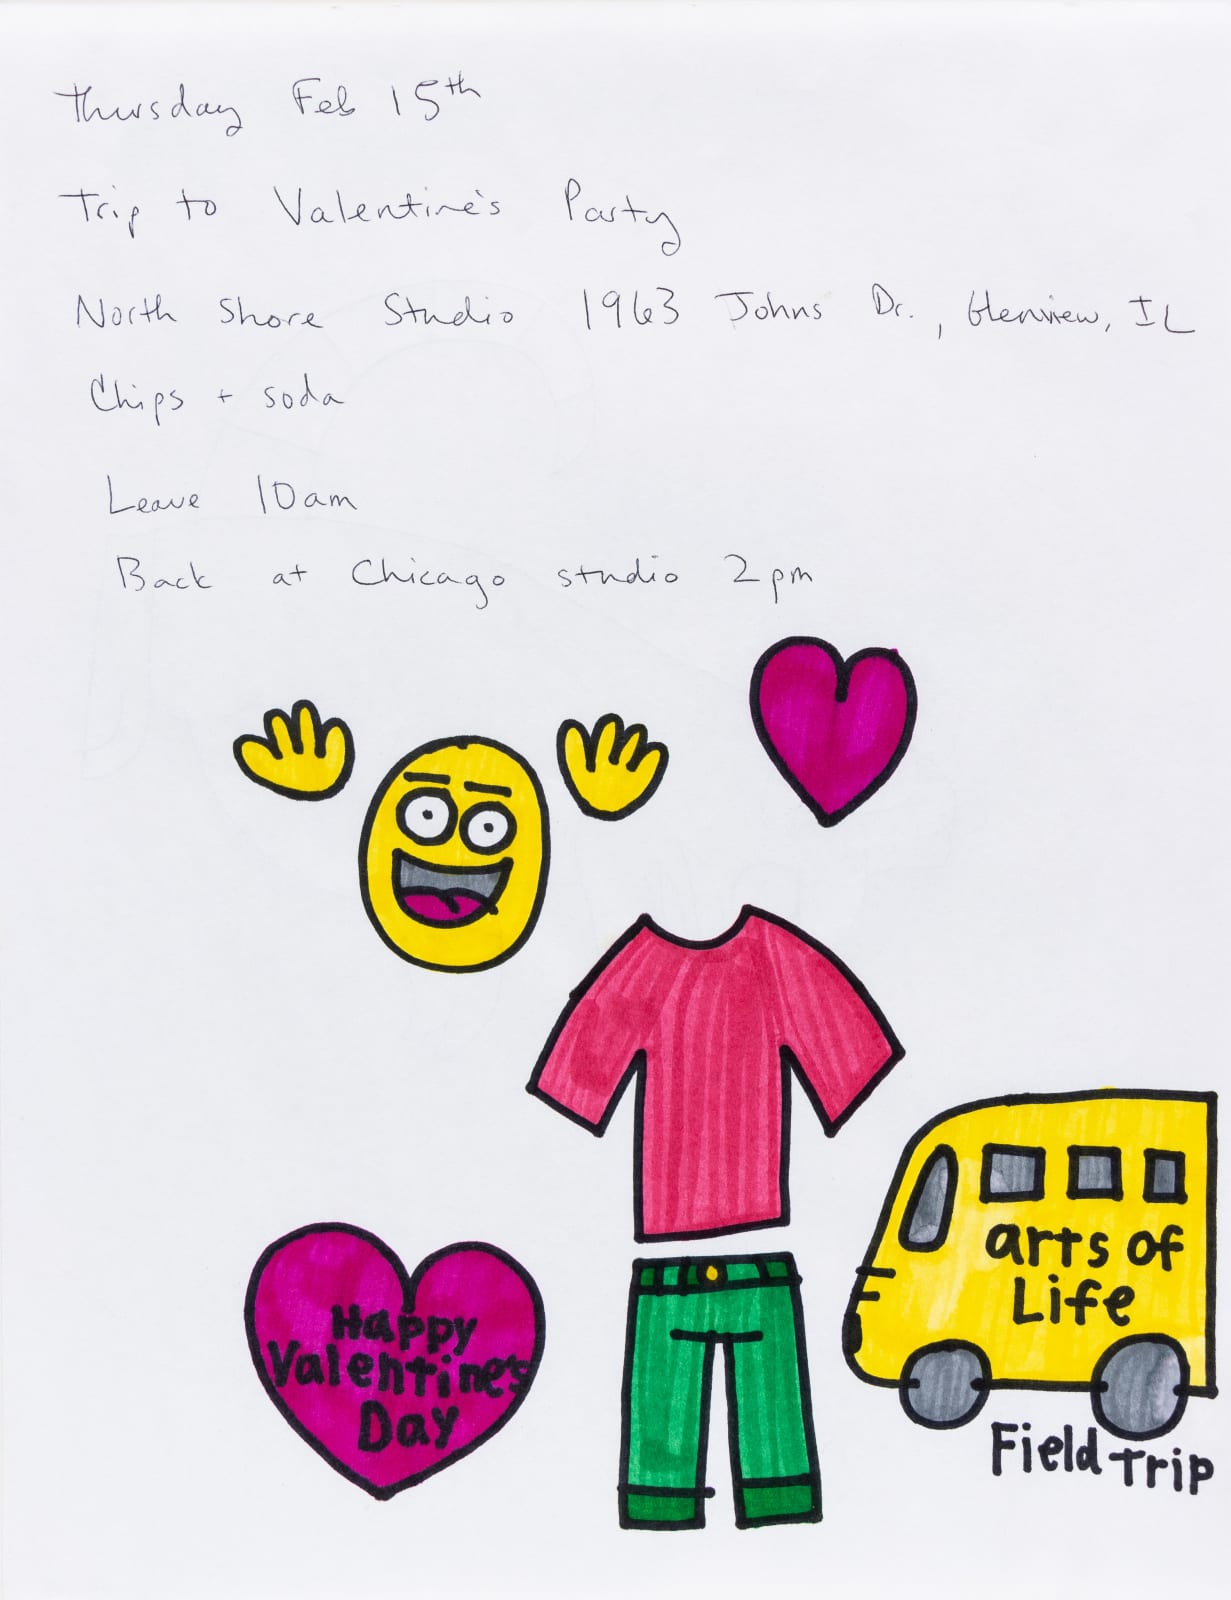 Thursday Feb 15th
Trip to Valentine's Party
North Shore Studio 1963 Johns Dr., Glenview, IL
Chips + soda
Leave 10am
Back at Chicago studio 2pm
arts of
Life
Happy
Valentine's
Day
Field Trip